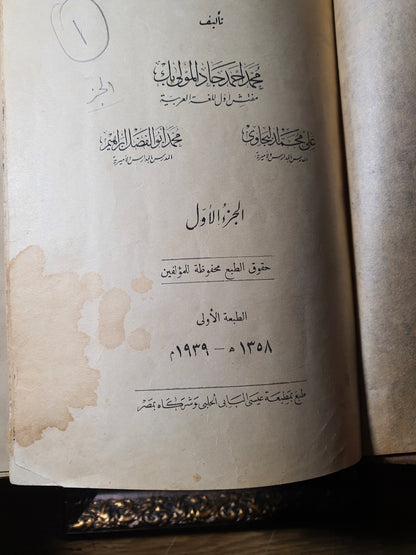 تأليف
١
محمد أحمد جاد المولى بك
مفتش أول للغة العربية
الجزء
علي محمد البجاوي
محمد أبو الفضل إبراهيم
المدرس بالمدارس الأميرية
المدرس بالمدارس الأميرية
الجزء الأول
حقوق الطبع محفوظة للمؤلفين
الطبعة الأولى
١٣٥٨ هـ — ١٩٣٩ م
طبع بمطبعة عيسى البابى الحلبى وشركاه بمصر